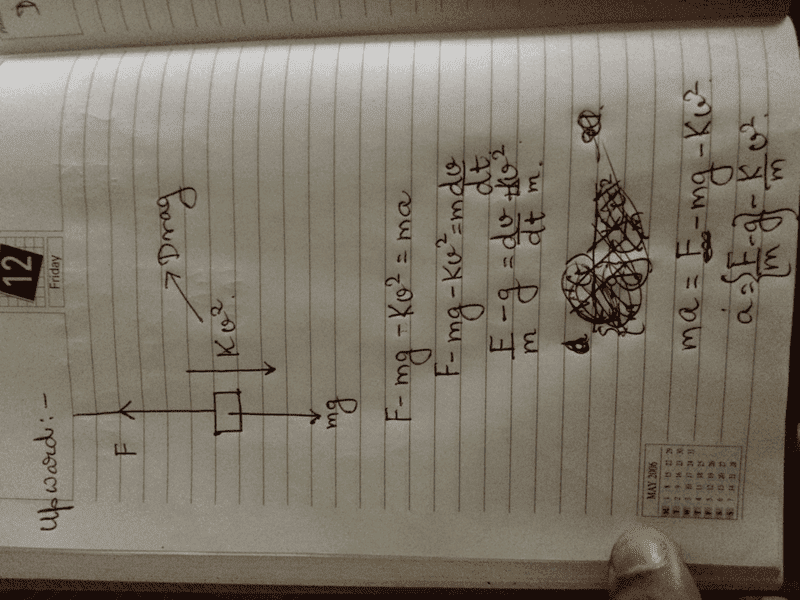 12
Friday
Upward:-
F
→ Drag
Kv².
mg
F - mg - Kv² = ma
F - mg - Kv² = m dv/dt
F/m - g = dv/dt + Kv²/m.
ma = F - mg - Kv²
a = {F/m - g} - K/m v².
MAY 2006